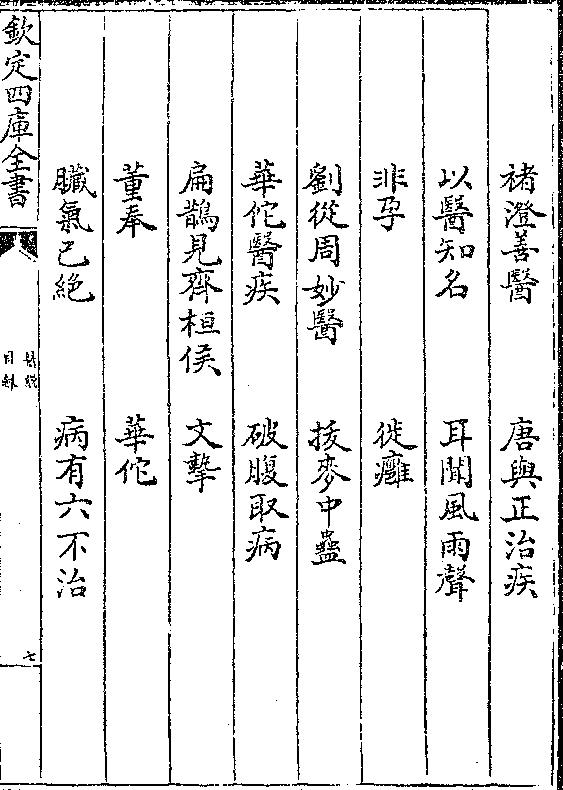 褚澄善醫　唐與正治疾
以醫知名　耳聞風雨聲
非孕　徙癰
劉從周妙醫　挼麥中蠱
華佗醫疾　破腹取病
扁鵲見齊桓侯　文摯
董奉　華佗
臟氣已絕　病有六不治
欽定四庫全書
醫說
目錄
七